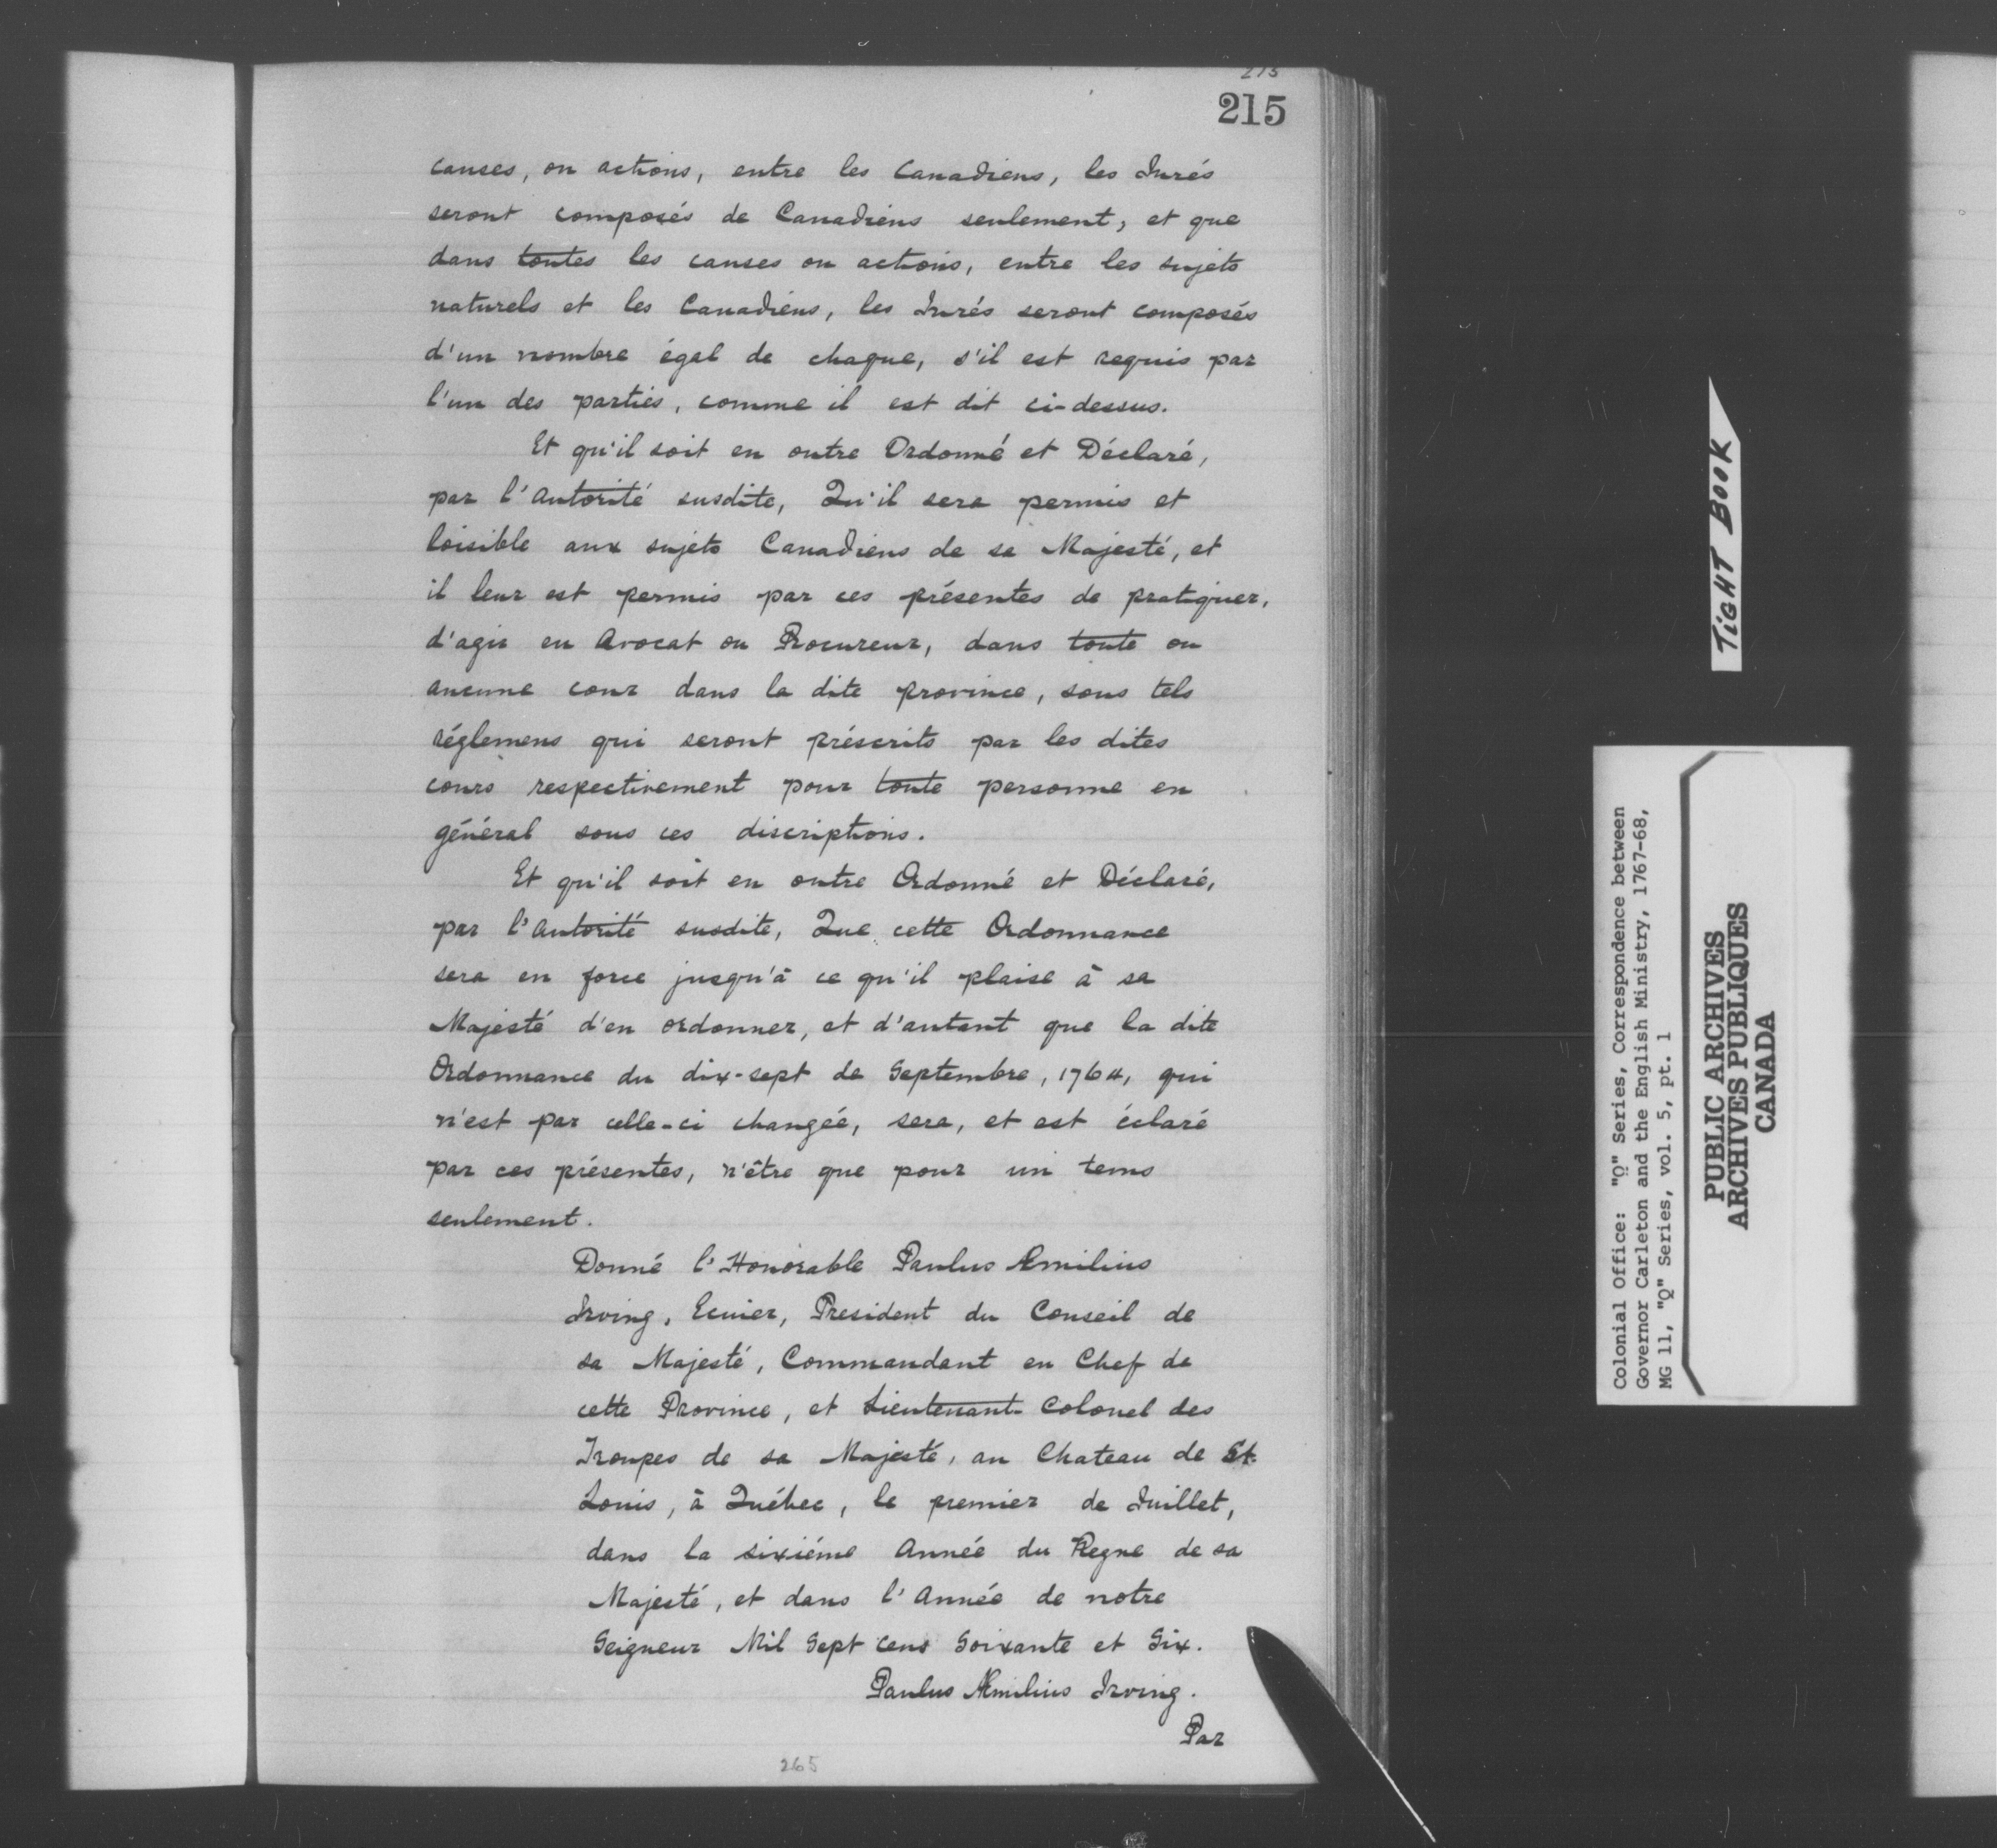 213
215
causes, ou actions, entre les Canadiens, les Jurés
seront composés de Canadiens seulement, et que
dans toutes les causes ou actions, entre les sujets
naturels et les Canadiens, les Jurés seront composés
d'un nombre égal de chaque, s'il est requis par
l'un des parties, comme il est dit ci-dessus.
Et qu'il soit en outre Ordonné et Déclaré,
par l'Autorité susdite, Qu'il sera permis et
loisible aux sujets Canadiens de sa Majesté, et
il leur est permis par ces présentes de pratiquer,
d'agir en Avocat ou Procureur, dans toute ou
aucune cour dans la dite province, sous tels
réglemens qui seront préscrits par les dites
cours respectivement pour toute personne en
général sous ces discriptions.
Et qu'il soit en outre Ordonné et Déclaré,
par l'Autorité susdite, Que cette Ordonnance
sera en force jusqu'à ce qu'il plaise à sa
Majesté d'en ordonner, et d'autant que la dite
Ordonnance du dix-sept de Septembre, 1764, qui
n'est par celle-ci changée, sera, et est éclaré
par ces présentes, n'être que pour un tems
seulement.
Donné l'Honorable Paulus Æmilius
Irving, Ecuier, President du Conseil de
sa Majesté, Commandant en Chef de
cette Province, et Lieutenant-Colonel des
Troupes de sa Majesté, au Chateau de St.
Louis, à Québec, le premier de Juillet,
dans la sixiéme Année du Regne de sa
Majesté, et dans l'Année de notre
Seigneur Mil Sept cens Soixante et Six.
Paulus Æmilius Irving.
Par
265
TIGHT BOOK
Colonial Office: "Q" Series, Correspondence between
Governor Carleton and the English Ministry, 1767-68,
MG 11, "Q" Series, vol. 5, pt. 1
PUBLIC ARCHIVES
ARCHIVES PUBLIQUES
CANADA